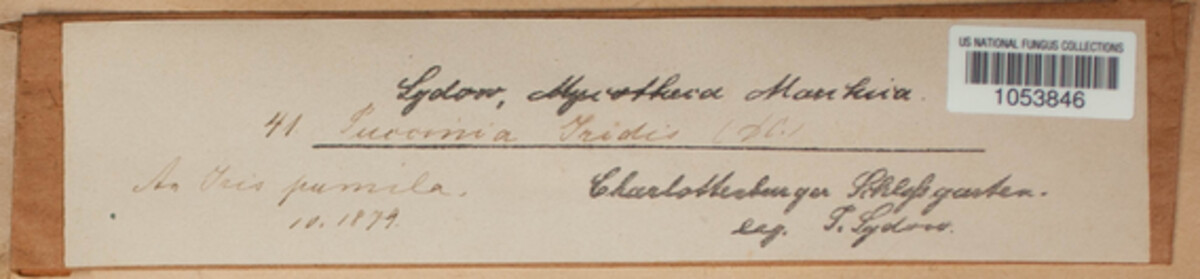 US NATIONAL FUNGUS COLLECTIONS
1053846
Sydow, Mycotheca Marchica.
41. Puccinia Iridis (DC.)
An Iris pumila.
10. 1879.
Charlottenburger Schloßgarten.
leg. P. Sydow.